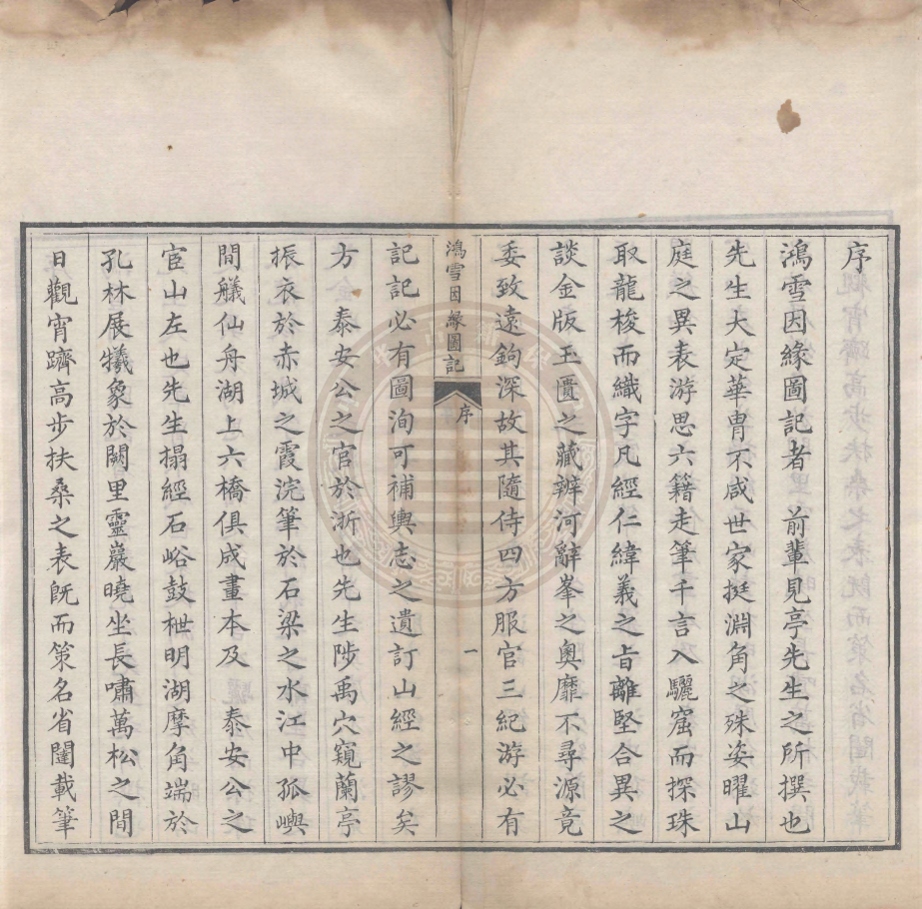 序
鴻雪因緣圖記者 前輩見亭先生之所撰也
先生大定華胄不咸世家挺淵角之殊姿曜山
庭之異表游思六籍走筆千言入驪窟而探珠
取龍梭而織字凡經仁緯義之旨離堅合異之
談金版玉匱之藏辨河辭峯之奧靡不尋源竟
委致遠鉤深故其隨侍四方服官三紀游必有
鴻雪因緣圖記 序 一
記記必有圖洵可補輿志之遺訂山經之謬矣
方 泰安公之官於浙也先生陟禹穴窺蘭亭
振衣於赤城之霞浣筆於石梁之水江中孤嶼
間艤仙舟湖上六橋俱成畫本及 泰安公之
宦山左也先生搨經石峪鼓枻明湖摩角端於
孔林展犧象於闕里靈巖曉坐長嘯萬松之間
日觀宵躋高步扶桑之表既而策名省闥載筆